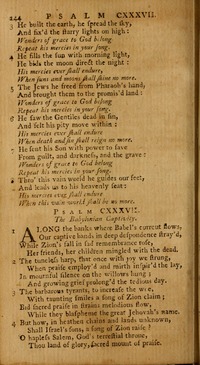 244 PSALM CXXXVII.
3 He built the earth, he spread the sky,
And fix'd the starry lights on high:
Wonders of grace to God belong,
Repeat his mercies in your song.
4 He fills the sun with morning light,
He bids the moon direct the night:
His mercies ever shall endure,
When suns and moons shall shine no more.
5 The Jews he freed from Pharaoh's hand,
And brought them to the promis'd land:
Wonders of grace to God belong,
Repeat his mercies in your song.
6 He saw the Gentiles dead in sin,
And felt his pity move within:
His mercies ever shall endure
When death and sin shall reign no more.
7 He sent his Son with power to save
From guilt, and darkness, and the grave:
Wonders of grace to God belong
Repeat his mercies in your song.
8 Thro' this vain world he guides our feet,
And leads us to his heavenly seat:
His mercies ever shall endure
When this vain world shall be no more.
PSALM CXXXVII.
The Babylonian Captivity.
1 ALONG the banks where Babel's current flows,
Our captive bands in deep despondence stray'd,
While Zion's fall in sad remembrance rose,
Her friends, her children mingled with the dead.
2 The tuneless harp, that once with joy we strung,
When praise employ'd and mirth inspir'd the lay,
In mournful silence on the willows hung;
And growing grief prolong'd the tedious day.
3 The barbarous tyrants, to increase the woe,
With taunting smiles a song of Zion claim;
Bid sacred praise in strains melodious flow,
While they blaspheme the great Jehovah's name.
4 But how, in heathen chains and lands unknown,
Shall Israel's sons, a song of Zion raise?
O hapless Salem, God's terrestrial throne,
Thou land of glory, sacred mount of praise.